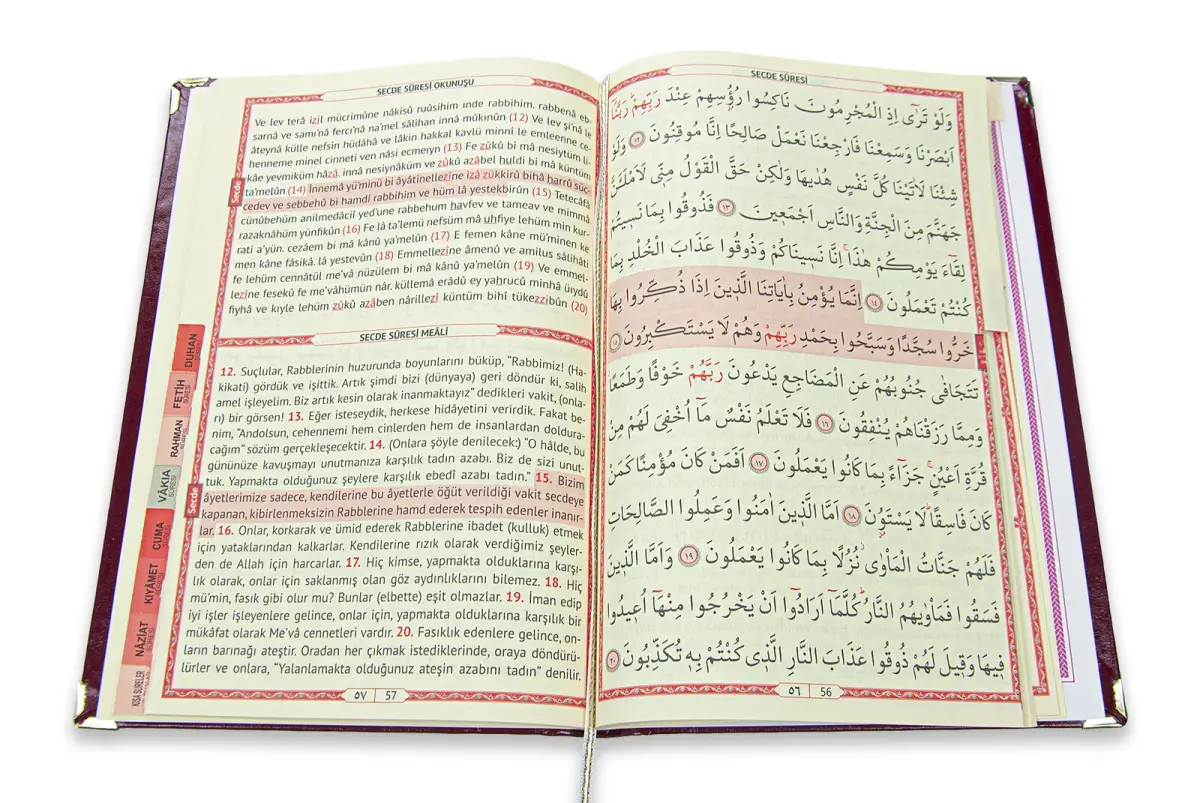 SECDE SÛRESİ OKUNUŞU
Ve lev terâ izil mücrimûne nâkisû ruûsihim ınde rabbihim. rabbenâ eb-
sarnâ ve sami'nâ ferci'nâ na'mel sâlihan innâ mûkınûn (12) Ve lev şi'nâ le
âteynâ külle nefsin hüdâhâ ve lâkin hakkal kavlü minnî le emleenne ce-
henneme minel cinneti ven nâsi ecmeıyn (13) Fe zûkû bi mâ nesiytüm li-
kâe yevmiküm hâzâ. innâ nesiynâküm ve zûkû azâbel huldi bi mâ küntüm
ta'melûn (14) İnnemâ yü'minü bi âyâtinellezîne izâ zükkirû bihâ harrû süc-
cedev ve sebbehû bi hamdi rabbihim ve hüm lâ yestekbirûn (15) Tetecâfâ
cünûbehüm anilmedâciıl yed'une rabbehum havfev ve tameav ve mimmâ
razaknâhüm yünfikûn (16) Fe lâ ta'lemü nefsüm mâ uhfiye lehüm min kur-
rati a'yün. cezâem bi mâ kânû ya'melûn (17) E femen kâne mü'minen ke
men kâne fâsikâ. lâ yestevûn (18) Emmellezîne âmenû ve amilus sâlihâti
fe lehüm cennâtül me'vâ nüzülem bi mâ kânû ya'melûn (19) Ve emmel-
lezîne fesekû fe me'vâhümün nâr. küllemâ erâdû ey yahrucû minhâ üıydû
fiyhâ ve kıyle lehüm zûkû azâben nârillezî küntüm bihî tükezzibûn (20)
Secde
SECDE SÛRESİ MEÂLİ
12. Suçlular, Rabblerinin huzurunda boyunlarını büküp, "Rabbimiz! (Ha-
kikati) gördük ve işittik. Artık şimdi bizi (dünyaya) geri döndür ki, salih
amel işleyelim. Biz artık kesin olarak inanmaktayız" dedikleri vakit, (onla-
rı) bir görsen! 13. Eğer isteseydik, herkese hidâyetini verirdik. Fakat be-
nim, "Andolsun, cehennemi hem cinlerden hem de insanlardan doldura-
cağım" sözüm gerçekleşecektir. 14. (Onlara şöyle denilecek:) "O hâlde, bu
gününüze kavuşmayı unutmanıza karşılık tadın azabı. Biz de sizi unut-
tuk. Yapmakta olduğunuz şeylere karşılık ebedî azabı tadın." 15. Bizim
âyetlerimize sadece, kendilerine bu âyetlerle öğüt verildiği vakit secdeye
kapanan, kibirlenmeksizin Rabblerine hamd ederek tespih edenler inanır-
lar. 16. Onlar, korkarak ve ümid ederek Rabblerine ibadet (kulluk) etmek
için yataklarından kalkarlar. Kendilerine rızık olarak verdiğimiz şeyler-
den de Allah için harcarlar. 17. Hiç kimse, yapmakta olduklarına karşı-
lık olarak, onlar için saklanmış olan göz aydınlıklarını bilemez. 18. Hiç
mü'min, fasık gibi olur mu? Bunlar (elbette) eşit olmazlar. 19. İman edip
iyi işler işleyenlere gelince, onlar için, yapmakta olduklarına karşılık bir
mükâfat olarak Me'vâ cennetleri vardır. 20. Fasıklık edenlere gelince, on-
ların barınağı ateştir. Oradan her çıkmak istediklerinde, oraya döndürü-
lürler ve onlara, "Yalanlamakta olduğunuz ateşin azabını tadın" denilir.
Secde
٥٧ 57
DUHAN
FETİH
SÛRESİ
RAHMAN
VÂKIA
SÛRESİ
CUMA
KIYÂMET
NÂZİAT
SÛRESİ
KISA SURELER
SECDE SÛRESİ
وَلَوْ تَرٰٓى اِذِ الْمُجْرِمُونَ نَاكِسُوا رُؤُ۫سِهِمْ عِنْدَ رَبِّهِمْۜ رَبَّنَٓا
اَبْصَرْنَا وَسَمِعْنَا فَارْجِعْنَا نَعْمَلْ صَالِحًا اِنَّا مُوقِنُونَ ﴿١٢﴾ وَلَوْ
شِئْنَا لَاٰتَيْنَا كُلَّ نَفْسٍ هُدٰيهَا وَلٰكِنْ حَقَّ الْقَوْلُ مِنّ۪ي لَاَمْلَـَٔنَّ
جَهَنَّمَ مِنَ الْجِنَّةِ وَالنَّاسِ اَجْمَع۪ينَ ﴿١٣﴾ فَذُوقُوا بِمَا نَس۪يتُمْ
لِقَٓاءَ يَوْمِكُمْ هٰذَاۚ اِنَّا نَس۪ينَاكُمْ وَذُوقُوا عَذَابَ الْخُلْدِ بِمَا
كُنْتُمْ تَعْمَلُونَ ﴿١٤﴾ اِنَّمَا يُؤْمِنُ بِاٰيَاتِنَا الَّذ۪ينَ اِذَا ذُكِّرُوا بِهَا
خَرُّوا سُجَّدًا وَسَبَّحُوا بِحَمْدِ رَبِّهِمْ وَهُمْ لَا يَسْتَكْبِرُونَ ﴿١٥﴾
تَتَجَافٰى جُنُوبُهُمْ عَنِ الْمَضَاجِعِ يَدْعُونَ رَبَّهُمْ خَوْفًا وَطَمَعًا
وَمِمَّا رَزَقْنَاهُمْ يُنْفِقُونَ ﴿١٦﴾ فَلَا تَعْلَمُ نَفْسٌ مَٓا اُخْفِيَ لَهُمْ مِنْ
قُرَّةِ اَعْيُنٍۚ جَزَٓاءً بِمَا كَانُوا يَعْمَلُونَ ﴿١٧﴾ اَفَمَنْ كَانَ مُؤْمِنًا كَمَنْ
كَانَ فَاسِقًاۜ لَا يَسْتَوُ۫نَ ﴿١٨﴾ اَمَّا الَّذ۪ينَ اٰمَنُوا وَعَمِلُوا الصَّالِحَاتِ
فَلَهُمْ جَنَّاتُ الْمَأْوٰىۘ نُزُلًا بِمَا كَانُوا يَعْمَلُونَ ﴿١٩﴾ وَاَمَّا الَّذ۪ينَ
فَسَقُوا فَمَأْوٰيهُمُ النَّارُۜ كُلَّمَٓا اَرَادُٓوا اَنْ يَخْرُجُوا مِنْهَٓا اُع۪يدُوا
ف۪يهَا وَق۪يلَ لَهُمْ ذُوقُوا عَذَابَ النَّارِ الَّذ۪ي كُنْتُمْ بِه۪ تُكَذِّبُونَ ﴿٢٠﴾
٥٦ 56